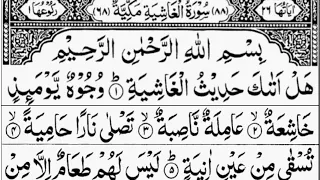 اٰیَاتُهَا ٢٦ (٨٨) سُوْرَةُ الْغَاشِیَةِ مَكِّیَّةٌ (٦٨) رُكُوْعُهَا ١
بِسْمِ اللّٰهِ الرَّحْمٰنِ الرَّحِیْمِ
هَلْ اَتٰىكَ حَدِیْثُ الْغَاشِیَةِ ؕ﴿١﴾ وُجُوْهٌ یَّوْمَىِٕذٍ
خَاشِعَةٌ ﴿٢﴾ عَامِلَةٌ نَّاصِبَةٌ ﴿٣﴾ تَصْلٰى نَارًا حَامِیَةً ﴿٤﴾
تُسْقٰى مِنْ عَیْنٍ اٰنِیَةٍ ؕ﴿٥﴾ لَیْسَ لَهُمْ طَعَامٌ اِلَّا مِنْ